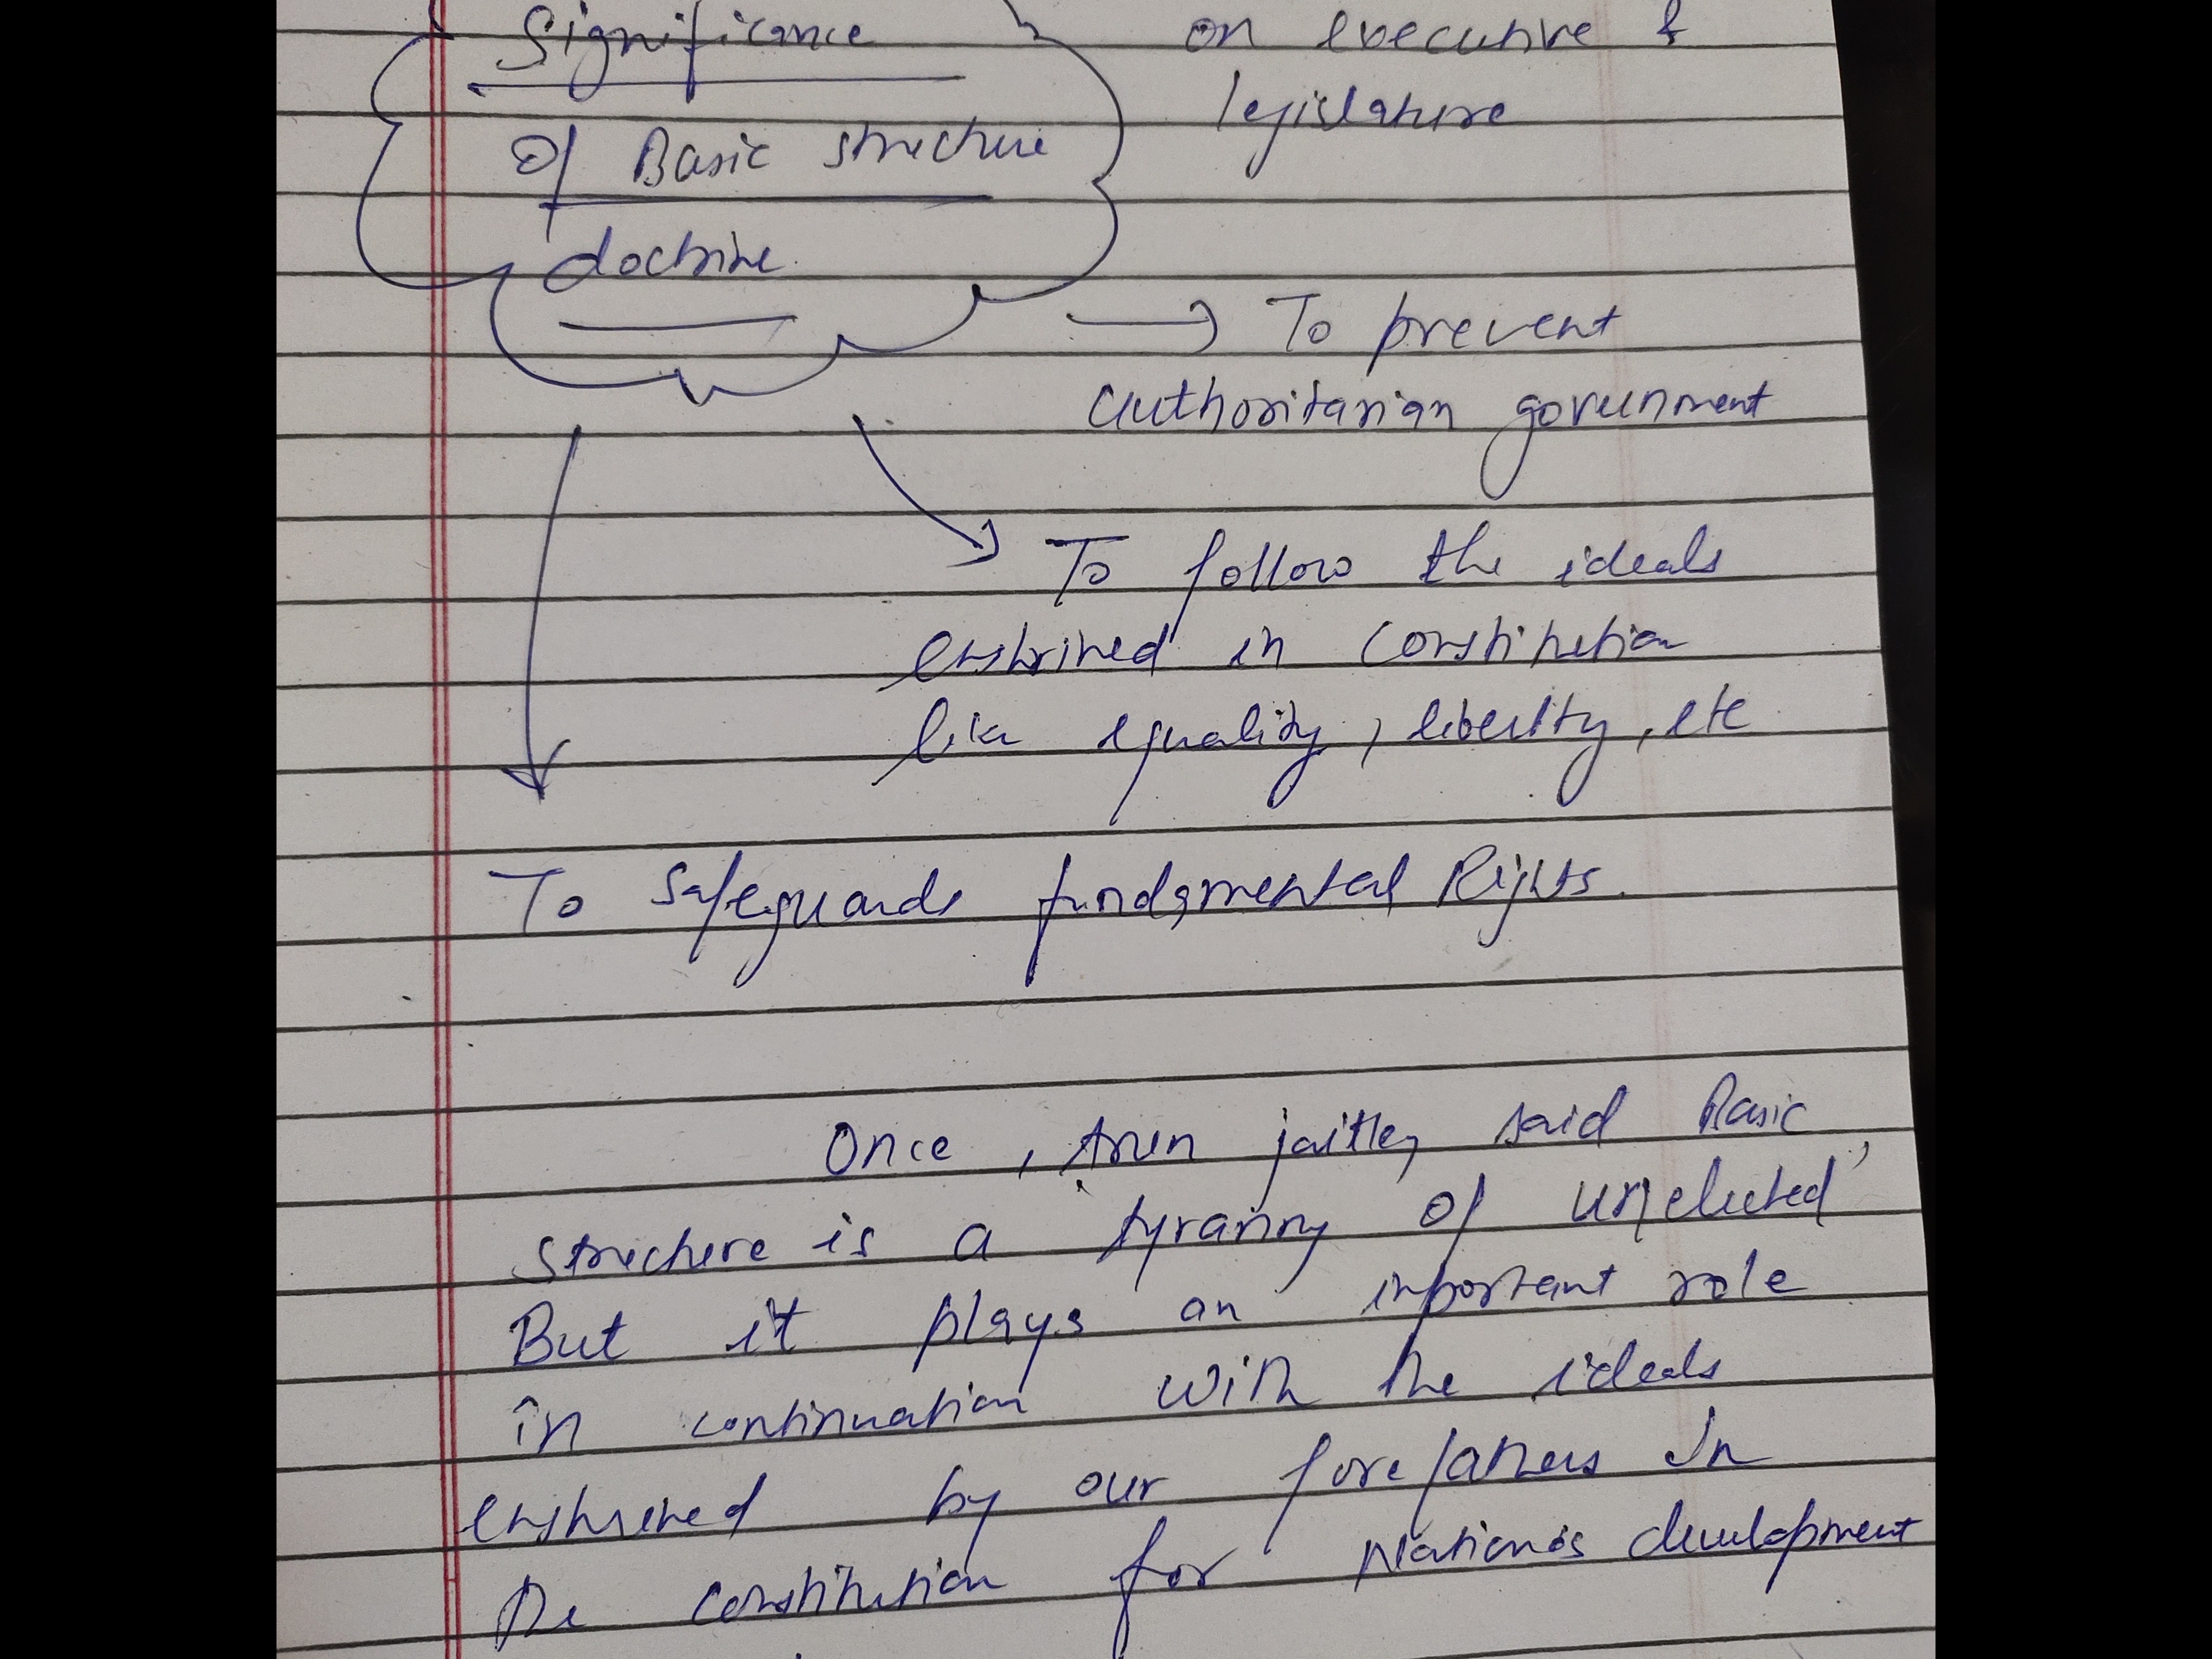 Significance
of Basic structure
doctrine.
on executive &
legislature
→ To prevent
authoritarian government
To follow the ideals
enshrined in constitution
like equality, libertty, etc
To safeguards fundamental Rights.
Once, Arun jaitley said Basic
structure is a tyranny of unelected'
But it plays an important role
in continuation with the ideals
enshrined by our forefathers In
the constitution for Nation's development